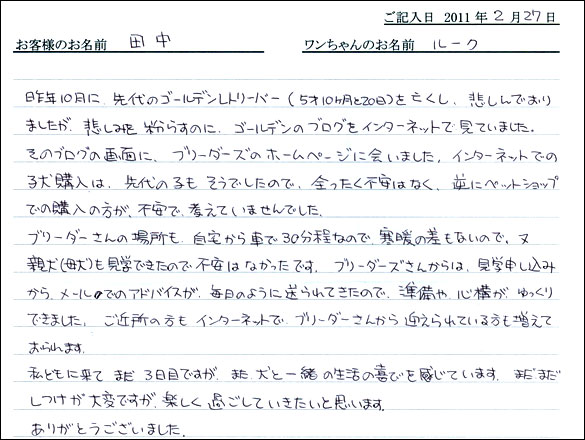 ご記入日 2011年2月27日
お客様のお名前 田中 ワンちゃんのお名前 ルーク
昨年10月に、先代のゴールデンレトリーバー（5才10ヶ月と20日）を亡くし、悲しんでおり
ましたが、悲しみを粉らすのに、ゴールデンのブログをインターネットで見ていました。
そのブログの画面に、ブリーダーズのホームページに会いました。インターネットでの
子犬購入は、先代の子もそうでしたので、全ったく不安はなく、逆にペットショップ
での購入の方が、不安で、考えていませんでした。
ブリーダーさんの場所も、自宅から車で30分程なので、寒暖の差もないので、又
親犬(母犬)も見学できたので不安はなかったです。ブリーダーズさんからは、見学申し込み
から、メールでのアドバイスが、毎日のように送られてきたので、準備や、心構が、ゆっくり
できました。ご近所の方もインターネットで、ブリーダーさんから迎えられている方も増えて
おられます。
私どもに来て まだ3日目ですが、また、犬と一緒の生活の喜びを感じています。まだまだ
しつけが大変ですが、楽しく過ごしていきたいと思います。
ありがとうございました。